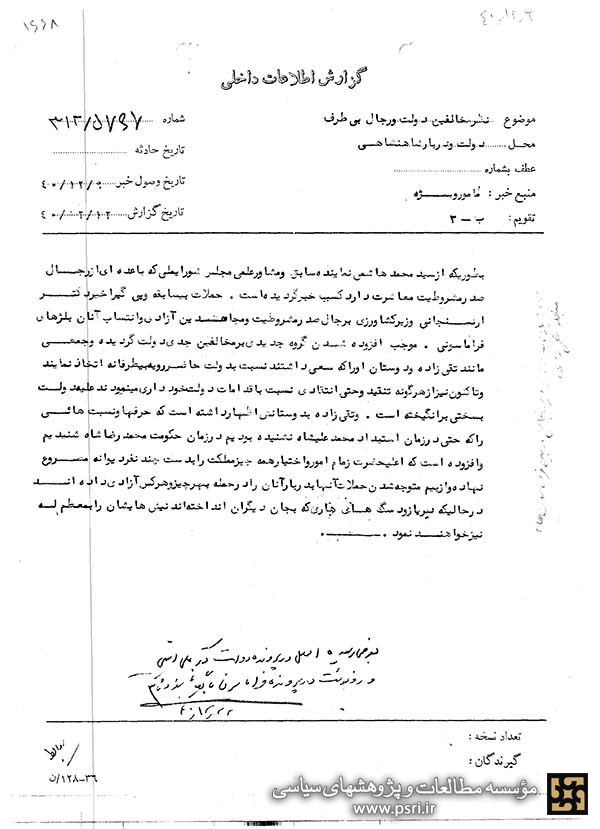 ۱۶۶۸
گزارش اطلاعات داخلی
موضوع نظر مخالفین دولت ورجال بی طرف
شماره ۳۱۲/۵۷۶۷
محل دولت ودربارشاهنشاهی
تاریخ حادثه
عطف بشماره
تاریخ وصول خبر ۴۰/۱۲/۹
منبع خبر : مامورویژه
تاریخ گزارش ۴۰/۰۲/۱۲
تقویم : ب - ۳
بطوریکه ازسید محمد هاشمی نماینده سابق ومشاورعلمی مجلس شورایملی که باعده ای ازرجال
صدرمشروطیت معاشرت دارد کسب خبرگردیده است . حملات بیسابقه وپی گیراخیردکتر
ارسنجانی وزیرکشاورزی برجال صدرمشروطیت ومجاهدین آزادی وانتساب آنان بلژهای
فراماسونی . موجب افزوده شدن گروه جدیدی برمخالفین جدی دولت گردیده وجمعی
مانند تقی زاده ودوستان اوراکه سعی داشتند نسبت بدولت حاضررویه بیطرفانه اتخاذ نمایند
وتاکنون نیزازهرگونه تنقید وحتی انتقادی نسبت باقدامات دولت خودداری مینمودند علیه دولت
بسختی برانگیخته است . وتقی زاده بدوستانش اظهارداشته است که حرفها ونسبت هائی
راکه حتی درزمان استبداد محمدعلیشاه نشنیده بودیم درزمان حکومت محمدرضاشاه شنیدیم
وافزوده است که اعلیحضرت زمام امورواختیارهمه چیزمملکت رابدست چند نفردیوانه مصروع
نهاده وازبیم متوجه شدن حملات آنها بدربارآنان رادرحمله بهرچیزوهرکس آزادی داده اند
درحالیکه دیریازود سگ هائی هاری که بجان دیگران انداخته اند نیش هایشان رابمعظم له
نیزخواهند نمود .
اصل در پرونده دولت دکتر علی امینی
تعداد نسخه :
گیرندگان :
۳۶-۱۲۸/ن
مؤسسه مطالعات و پژوهشهای سیاسی
www.psri.ir